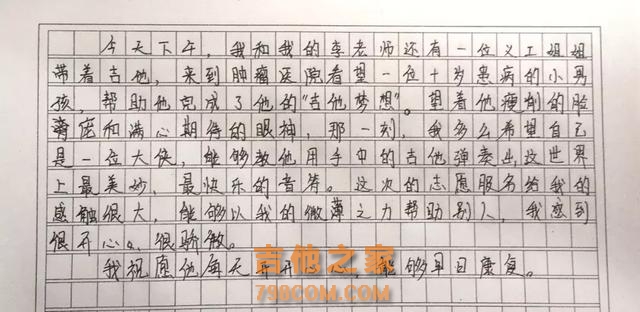 今天下午，我和我的李老师还有一位义工姐姐
带着吉他，来到肿瘤医院看望一位十岁患病的小男
孩，帮助他完成了他的"吉他梦想"。望着他瘦削的脸
庞和满心期待的眼神，那一刻，我多么希望自己
是一位大侠，能够教他用手中的吉他弹奏出这世界
上最美妙、最快乐的音符。这次的志愿服务给我的
感触很大，能够以我的微薄之力帮助别人，我感到
很开心、很骄傲。
我祝愿他每天开开心心 能够早日康复。
吉他之家
798COM.COM